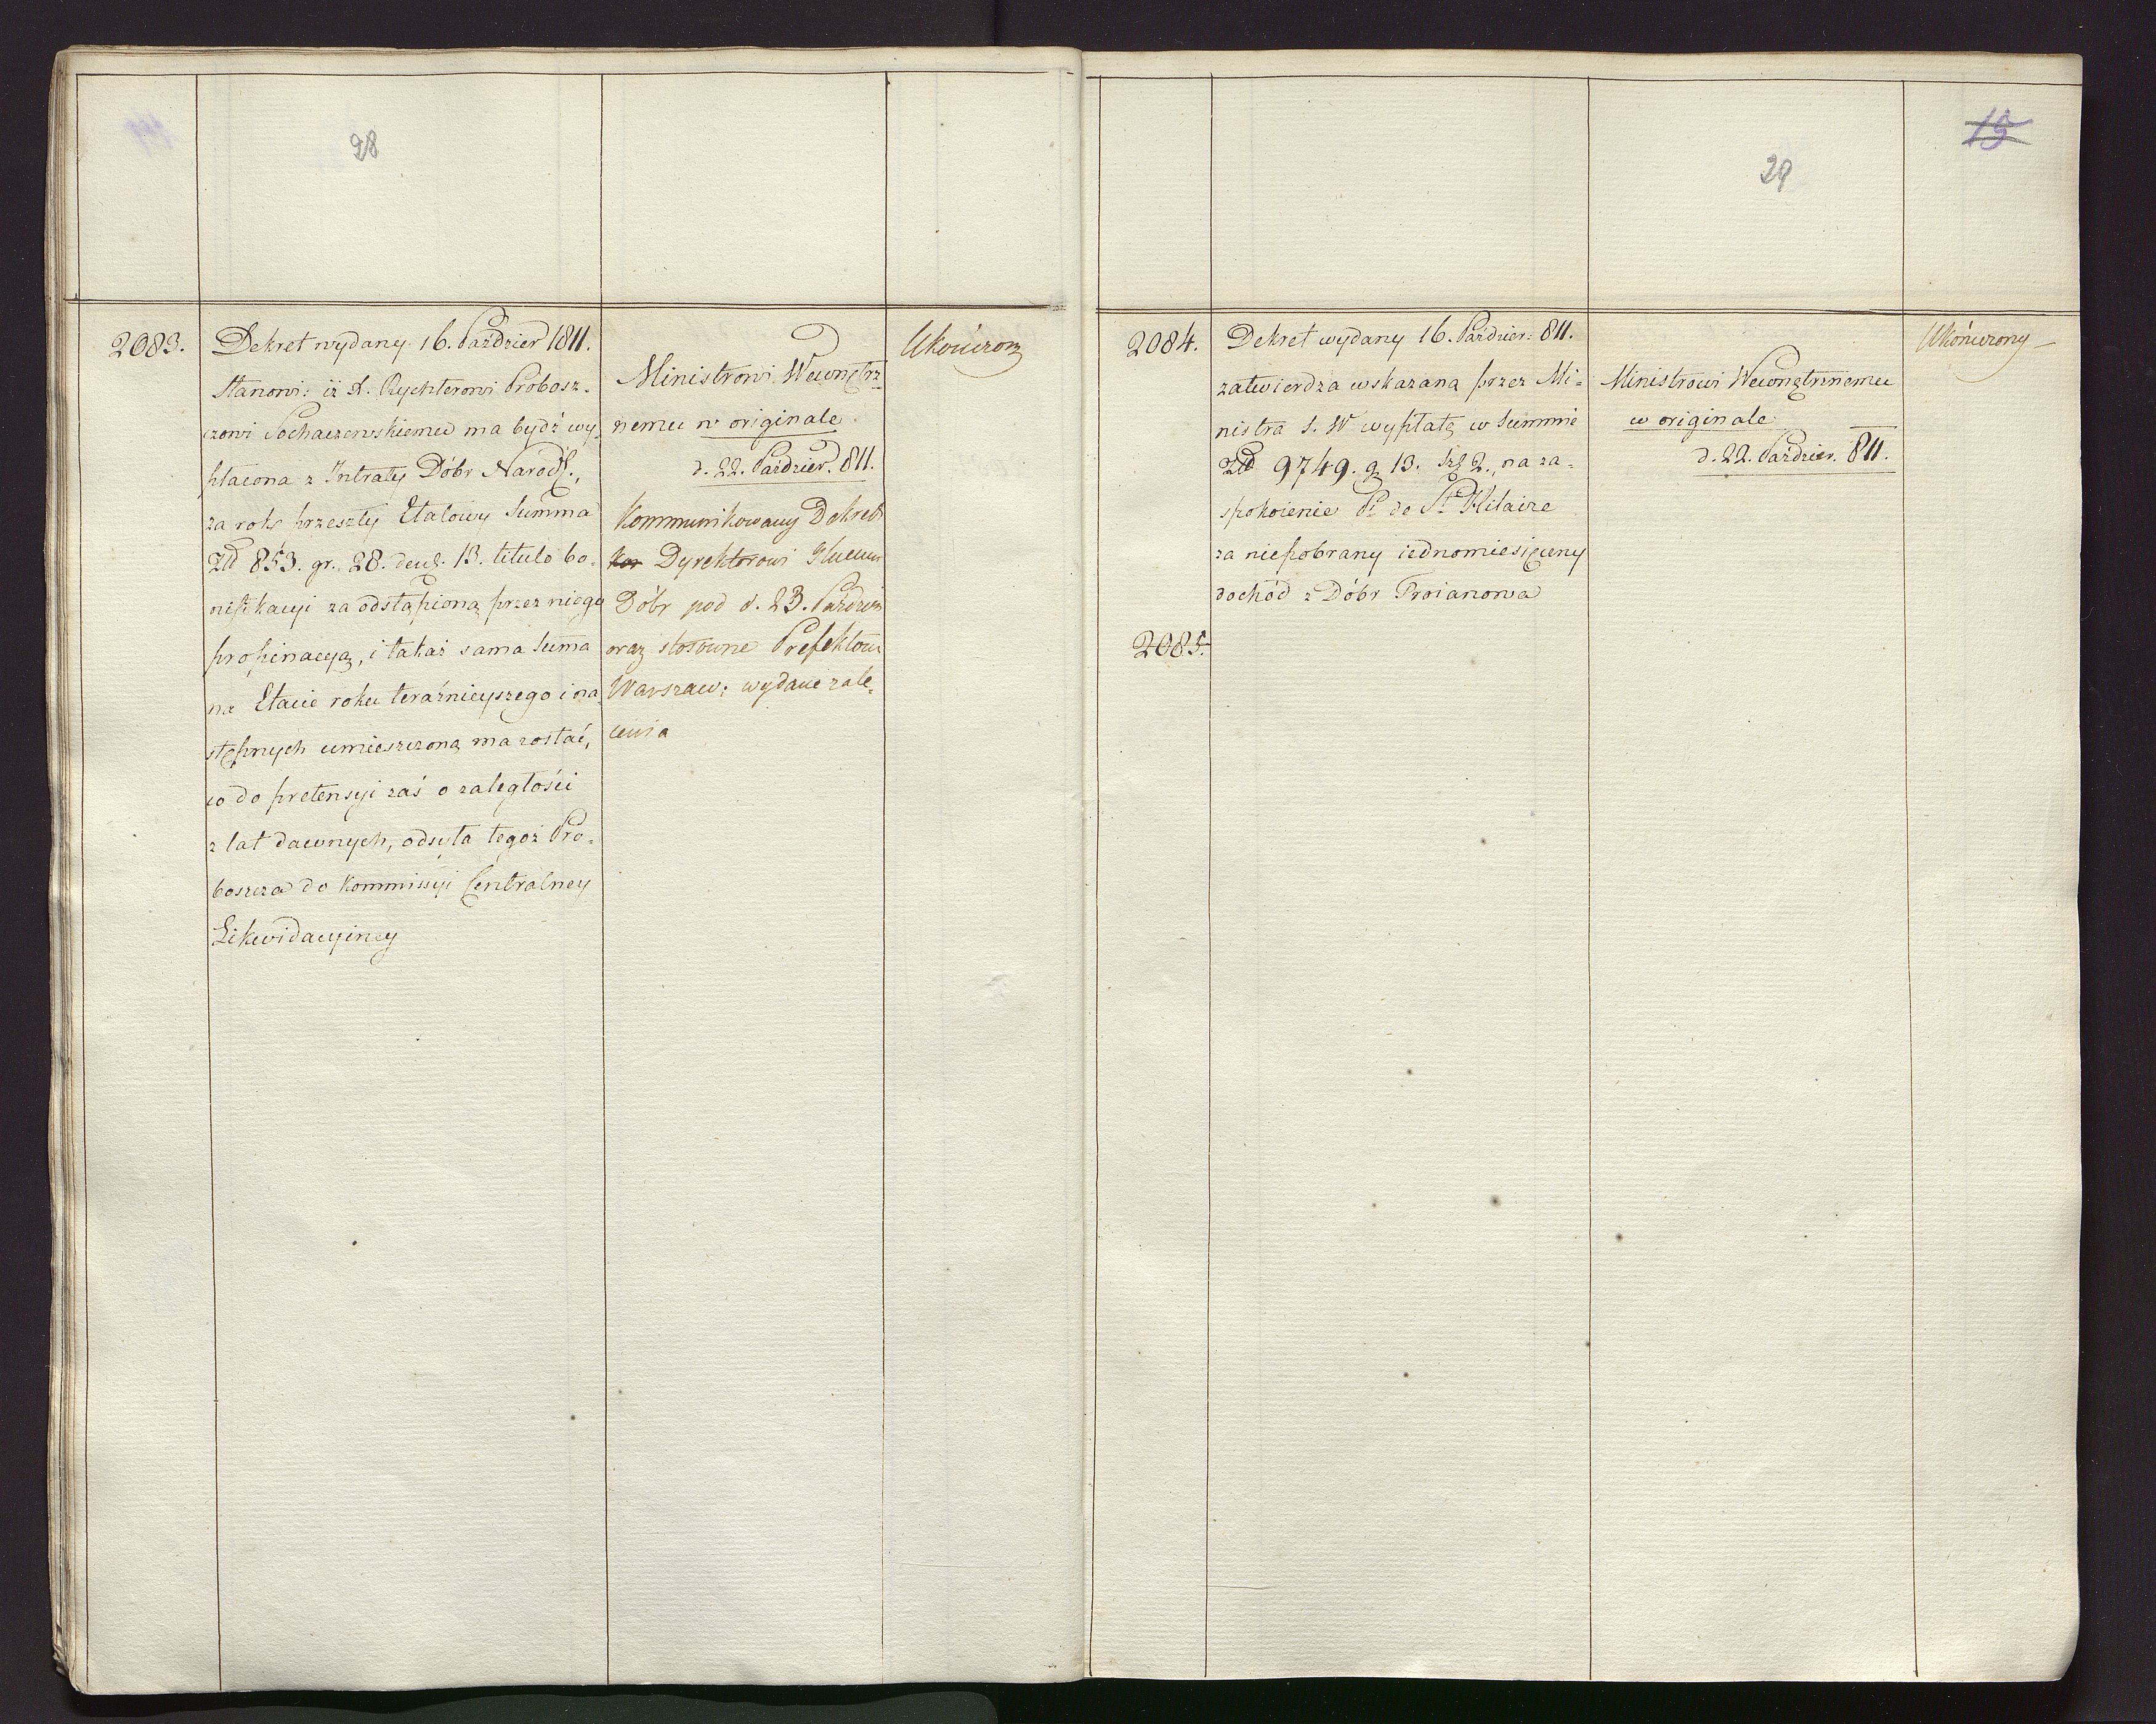 28
2083.
Dekret wydany 16. Paździer 1811.
Stanowi: iż X. Rychterowi Probosz-
czowi Sochaczewskiemu ma bydź wy-
płacona z Intraty Dóbr Narod.,
za rok przeszły Etatowy Summa
Złł 853. gr. 28. den. 13. titulo bo-
nifikacyi za odstąpioną przez niego
propinacyą, i takaż sama suma
na Etacie roku teraźnieyszego i na-
stępnych umieszczoną ma zostać,
co do pretensyi zaś o zaległości
z lat dawnych, odsyła tegoż Pro-
boszcza do Kommissyi Centralney
Likwidacyiney
Ministrowi Wewnętrz-
nemu w originale
d. 22. Paździer. 811.
Kommunikowany Dekret
Dyrektorowi
Dóbr pod d. 23. Paździer
oraz stosowne Prefektowi
Warszaw: wydane zale-
cenia
Ukończony
15
29
2084.
Dekret wydany 16. Paździer: 811.
zatwierdza wskazaną przez Mi-
nistra S. W wypłatę w Summie
Złł 9749. g 13. 2., na za-
spokoienie P. de St Hilaire
za niepobrany iednomiesięczny
dochód z Dóbr Troianowa
Ministrowi Wewnętrznemu
w originale
d. 22. Paździer. 811.
Ukończony
2085.